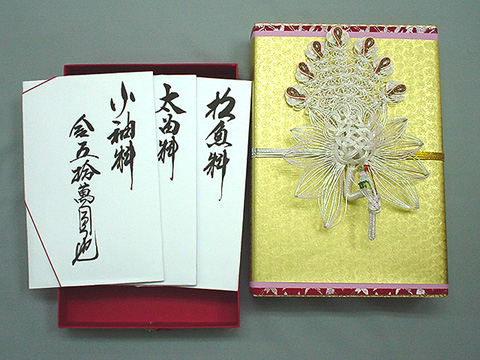 松魚料
太留料
小袖料
金五拾萬圓也